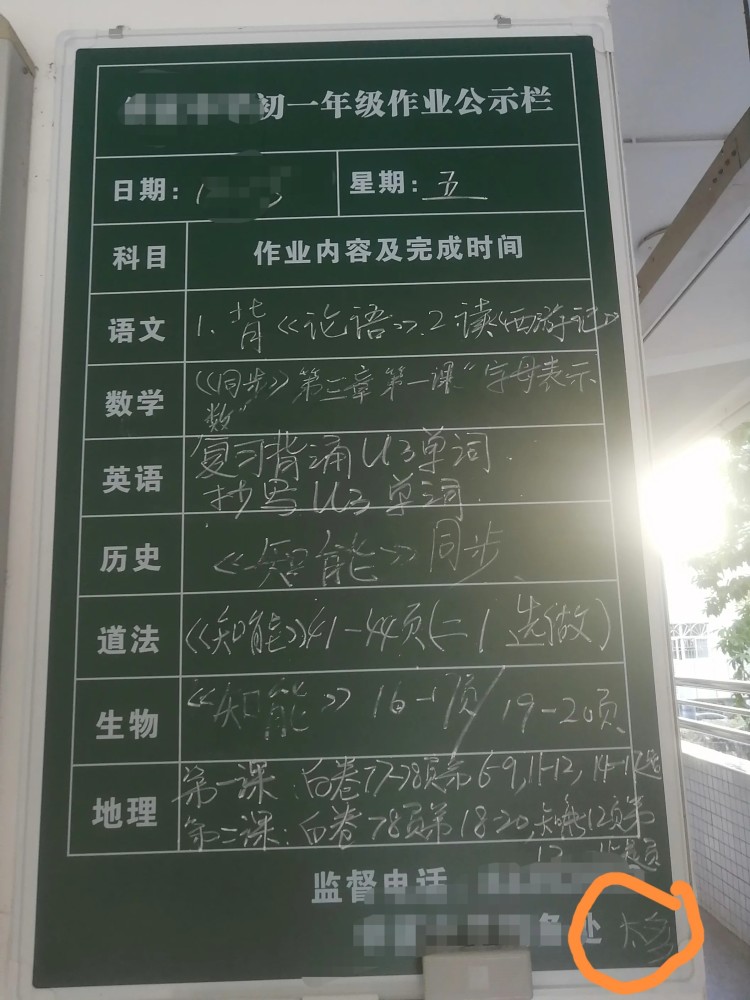 初一年级作业公示栏
日期：
星期：五
科目
作业内容及完成时间
语文
1. 背《论语》. 2 读《西游记》
数学
《同步》第三章第一课“字母表示
数”
英语
复习背诵U3单词.
抄写U3单词.
历史
《知能》同步
道法
《知能》41-44页(二1选做)
生物
《知能》16-1页/19-20页
地理
第一课：白卷77-78页第6-9,11-12,14-17题
第二课：白卷78页第18-20,知能12页第
监督电话
处
太多